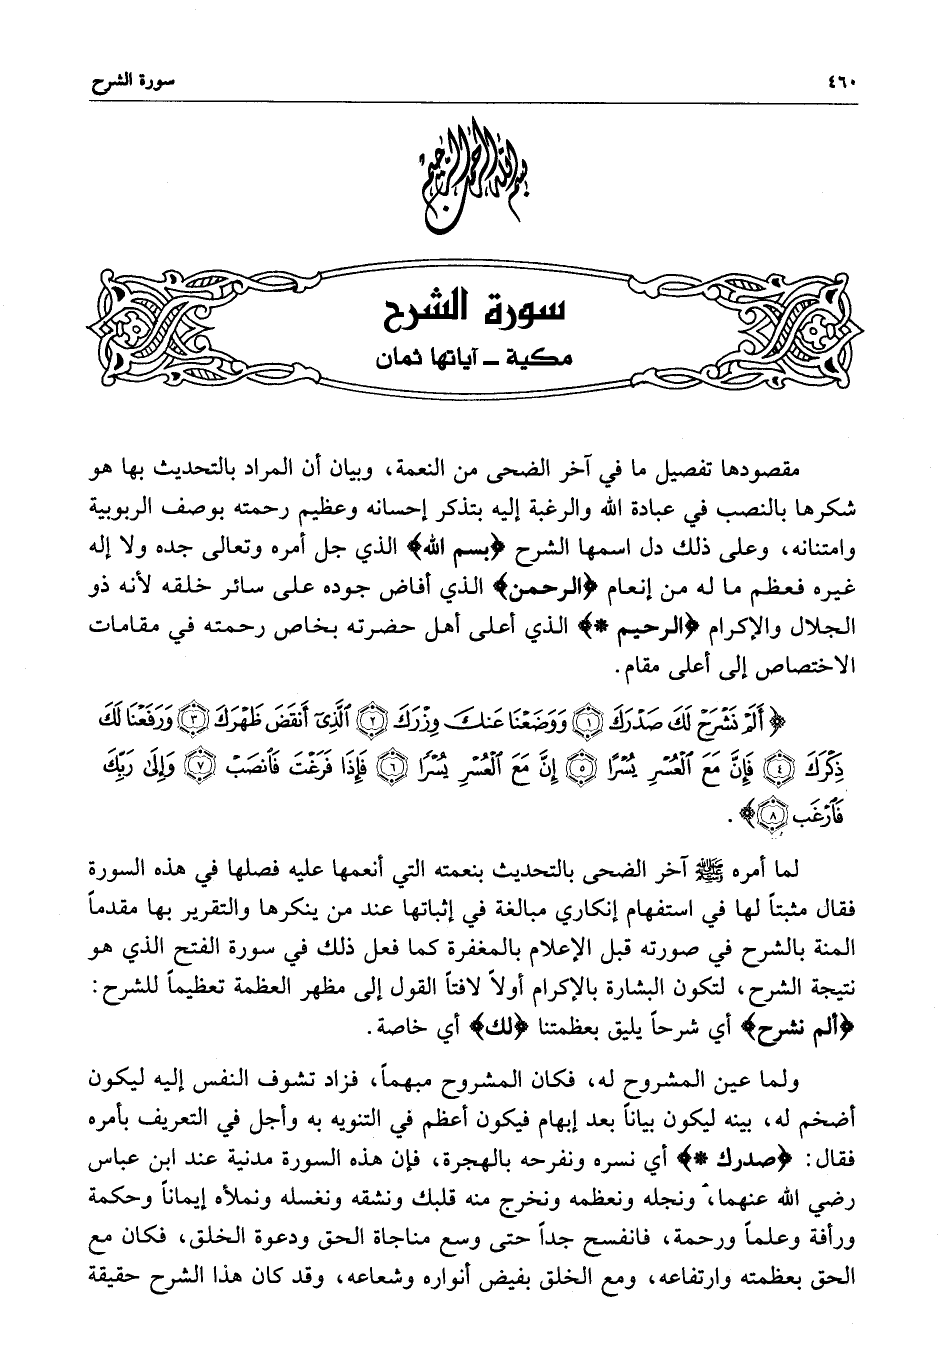 ٤٦٠ سورة الشرح
بسم الله الرحمن الرحيم
سورة الشرح
مكية ـ آياتها ثمان
مقصودها تفصيل ما في آخر الضحى من النعمة، وبيان أن المراد بالتحديث بها هو
شكرها بالنصب في عبادة الله والرغبة إليه بتذكر إحسانه وعظيم رحمته بوصف الربوبية
وامتنانه، وعلى ذلك دل اسمها الشرح ﴿بسم الله﴾ الذي جل أمره وتعالى جده ولا إله
غيره فعظم ما له من إنعام ﴿الرحمن﴾ الذي أفاض جوده على سائر خلقه لأنه ذو
الجلال والإكرام ﴿الرحيم *﴾ الذي أعلى أهل حضرته بخاص رحمته في مقامات
الاختصاص إلى أعلى مقام.
﴿ أَلَمْ نَشْرَحْ لَكَ صَدْرَكَ ۝١ وَوَضَعْنَا عَنكَ وِزْرَكَ ۝٢ ٱلَّذِىٓ أَنقَضَ ظَهْرَكَ ۝٣ وَرَفَعْنَا لَكَ
ذِكْرَكَ ۝٤ فَإِنَّ مَعَ ٱلْعُسْرِ يُسْرًا ۝٥ إِنَّ مَعَ ٱلْعُسْرِ يُسْرًا ۝٦ فَإِذَا فَرَغْتَ فَٱنصَبْ ۝٧ وَإِلَىٰ رَبِّكَ
فَٱرْغَب ۝٨﴾ .
لما أمره ﷺ آخر الضحى بالتحديث بنعمته التي أنعمها عليه فصلها في هذه السورة
فقال مثبتاً لها في استفهام إنكاري مبالغة في إثباتها عند من ينكرها والتقرير بها مقدماً
المنة بالشرح في صورته قبل الإعلام بالمغفرة كما فعل ذلك في سورة الفتح الذي هو
نتيجة الشرح، لتكون البشارة بالإكرام أولاً لافتاً القول إلى مظهر العظمة تعظيماً للشرح:
﴿ألم نشرح﴾ أي شرحاً يليق بعظمتنا ﴿لك﴾ أي خاصة.
ولما عين المشروح له، فكان المشروح مبهماً، فزاد تشوف النفس إليه ليكون
أضخم له، بينه ليكون بياناً بعد إبهام فيكون أعظم في التنويه به وأجل في التعريف بأمره
فقال: ﴿صدرك *﴾ أي نسره ونفرحه بالهجرة، فإن هذه السورة مدنية عند ابن عباس
رضي الله عنهما، ونجله ونعظمه ونخرج منه قلبك ونشقه ونغسله ونملأه إيماناً وحكمة
ورأفة وعلماً ورحمة، فانفسح جداً حتى وسع مناجاة الحق ودعوة الخلق، فكان مع
الحق بعظمته وارتفاعه، ومع الخلق بفيض أنواره وشعاعه، وقد كان هذا الشرح حقيقة